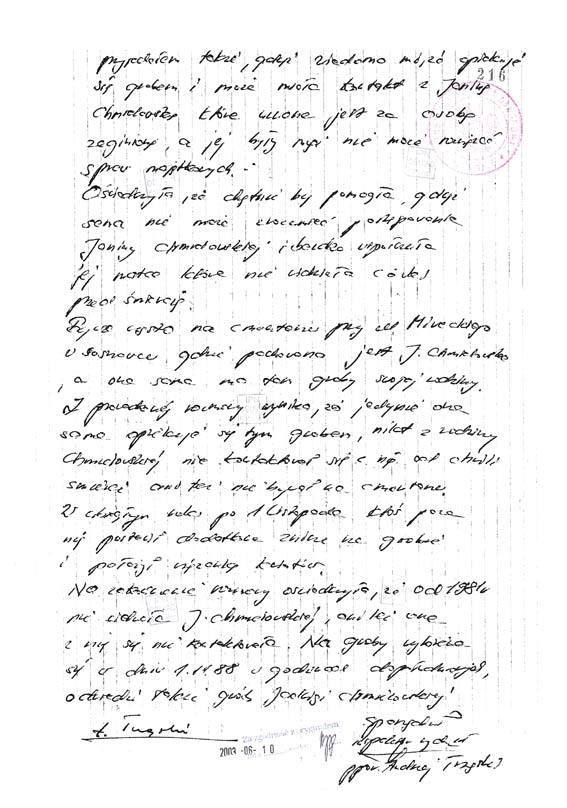 216
przyjechałem także, gdyż wiadomo mi, że opiekuje
się grobem i może miała kontakt z Janiną
Chmielowską które uznana jest za osobę
zaginioną, a jej były mąż nie może rozwiązać
spraw majątkowych. -
Oświadczyła, że chętnie by pomogła, gdyż
sama nie może zrozumieć postępowania
Janiny Chmielowskiej i bardzo
jej matce która nie widziała córki
przed śmiercią.
Bywa często na cmentarzu przy ul. Mireckiego
w Sosnowcu, gdzie pochowana jest J. Chmielowska
, a ona sama ma tam groby swojej rodziny.
Z prowadzonej rozmowy wynika, że jedynie ona
sama opiekuje się tym grobem, nikt z rodziny
Chmielowskiej nie kontaktował się z nią od chwili
śmierci ani też nie bywał na cmentarzu.
W ubiegłym roku po 1 listopada ktoś poza
nią postawił dodatkowe znicze na grobie
i położył wiązankę kwiatów.
Na zakończenie rozmowy oświadczyła, że od 1981r
nie widziała J. Chmielowskiej, ani też ona
z nią się nie kontaktowała. Na groby wybiera
się w dniu 1.11.88 w godzinach dopołudniowych,
odwiedzi także grób Jadwigi Chmielowskiej!
Za zgodność z oryginałem
2003 -06- 1 0
Sporządził
ppor. Andrzej